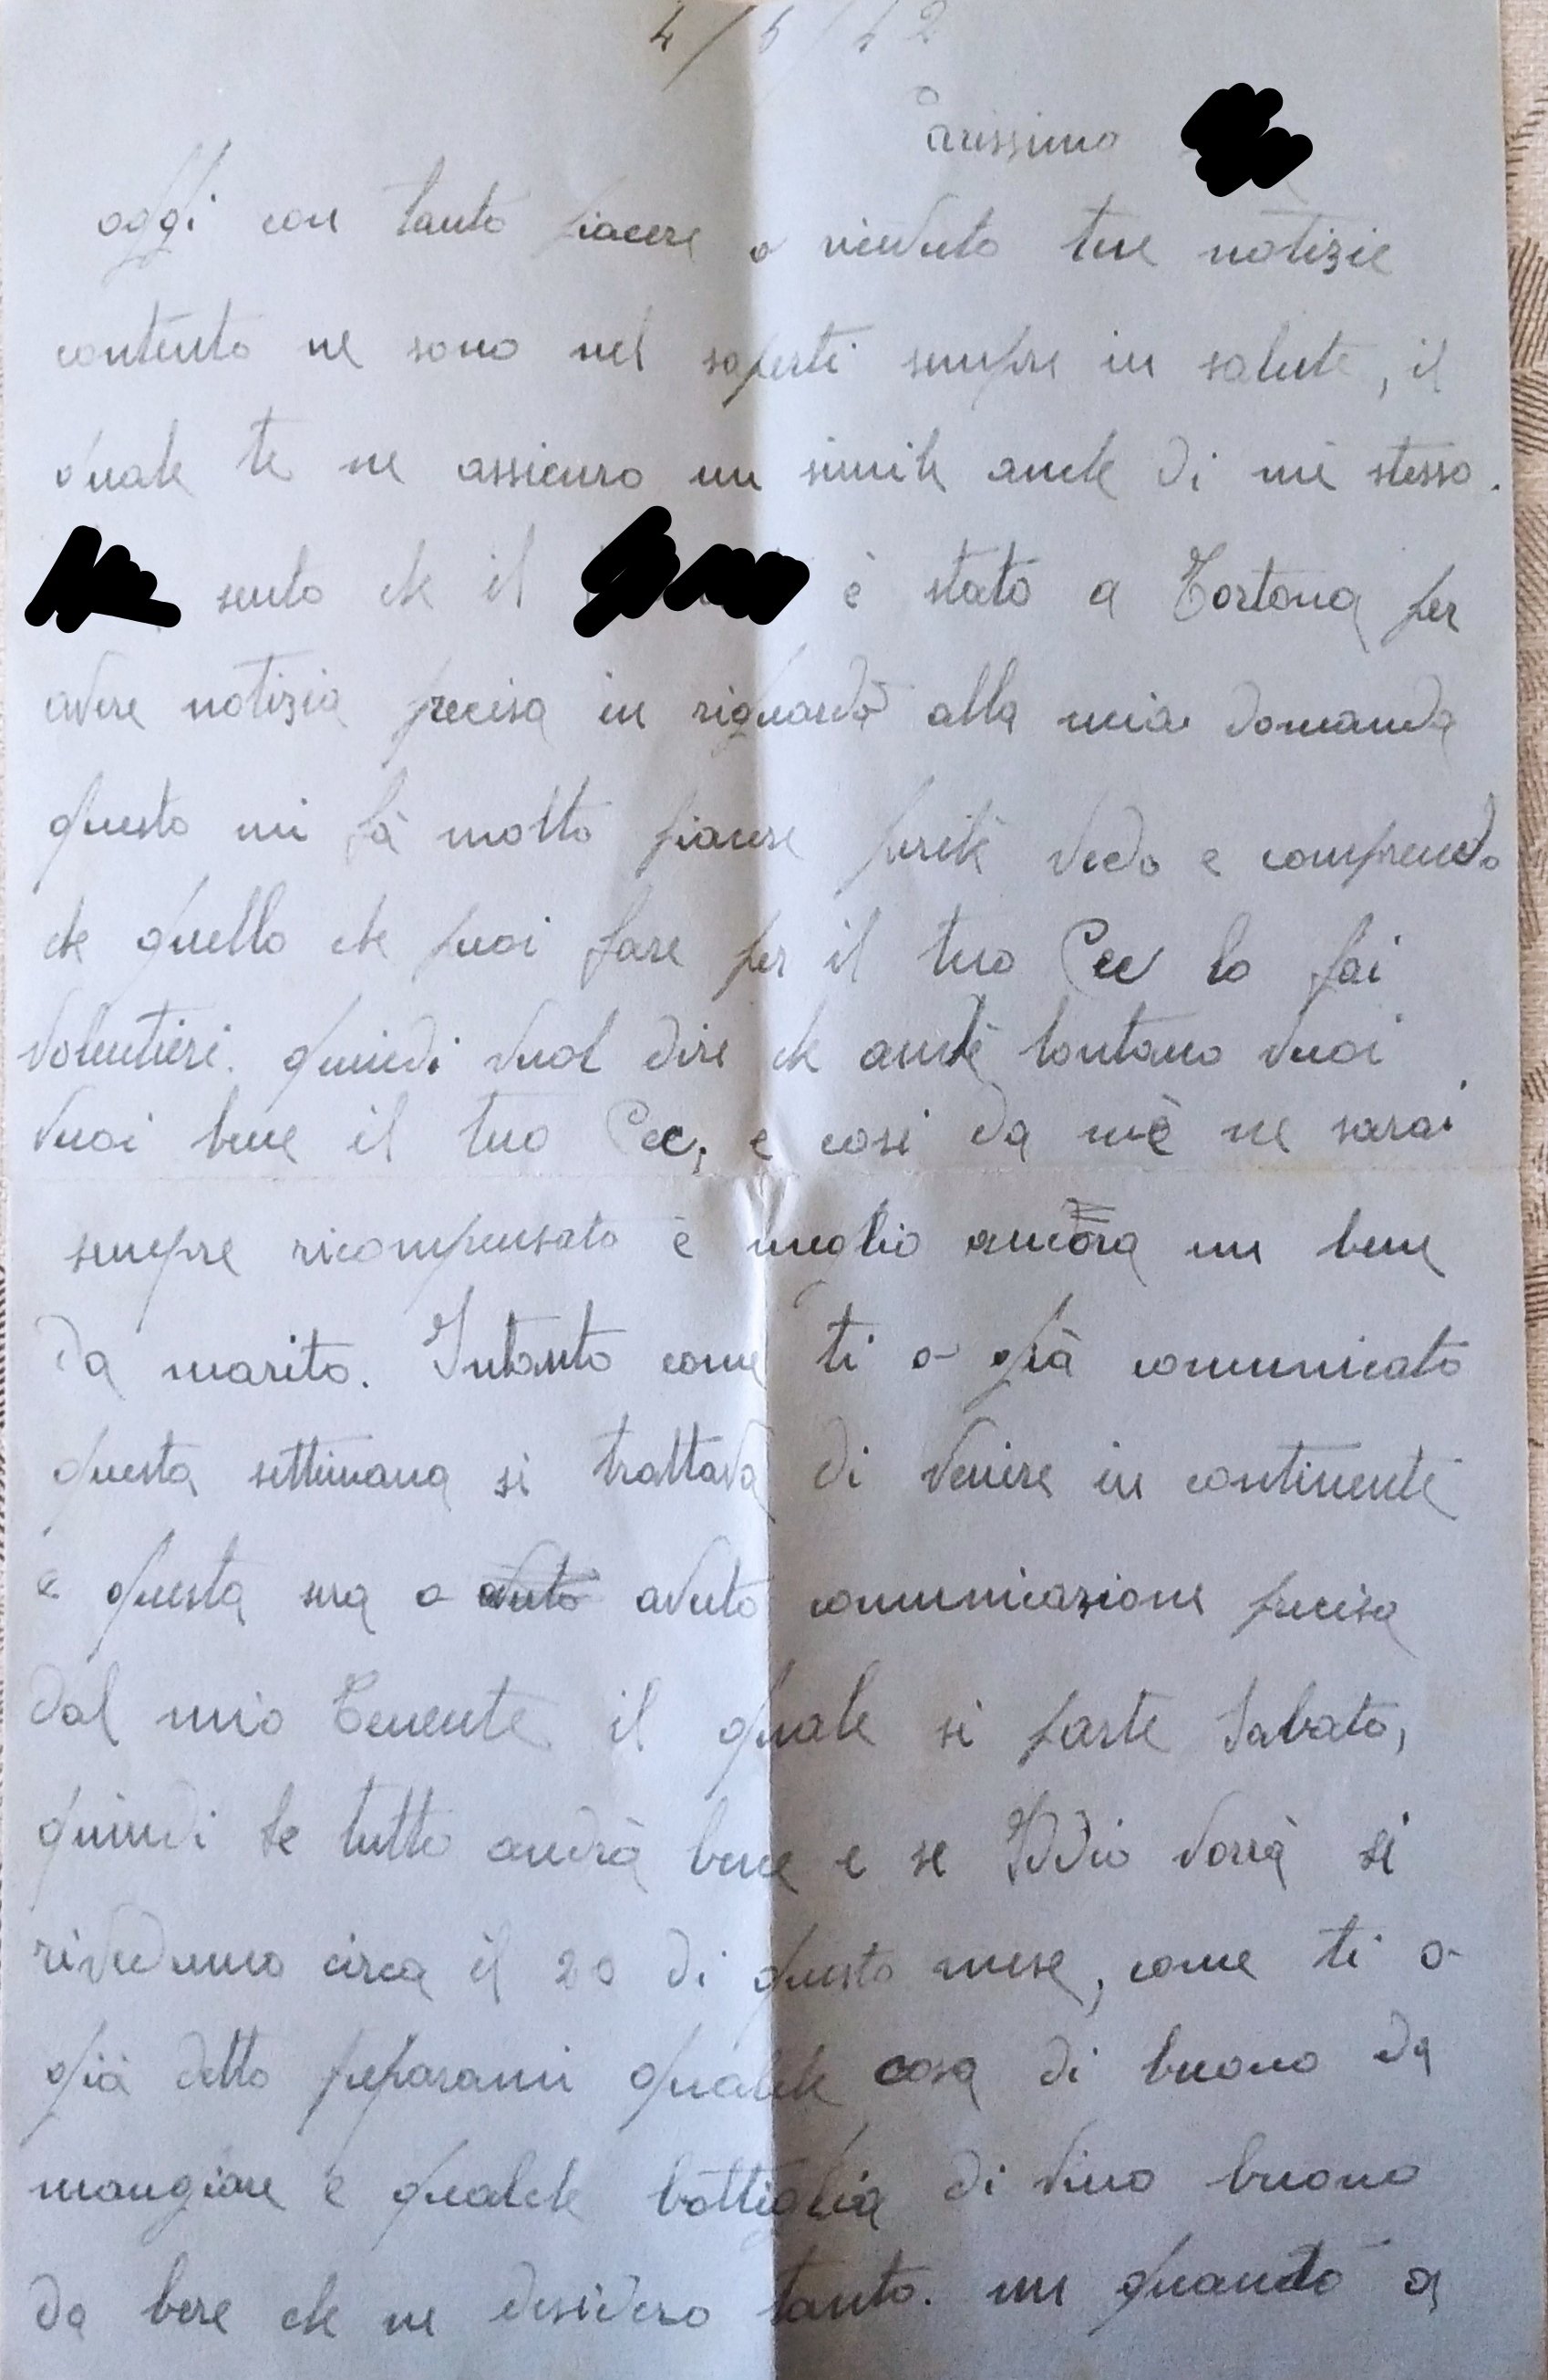 4/5/42
Carissima
oggi con tanto piacere o riceduto tue notizie
contento ne sono nel saperti sempre in salute, il
quale te ne assicuro un simile anche di mè stesso.
sento che il è stato a Tortona per
avere notizia precisa in riguardo alla mia domanda
questo mi fà molto piacere perchè vedo e comprendo
che quello che puoi fare per il tuo Cec lo fai
volentieri. quindi vuol dire che anchè lontano vuoi
vuoi bene il tuo Cec, e cosi da mè ne sarai
sempre ricompensato è meglio ancora un bene
da marito. Intanto come ti o già comunicato
questa settimana si trattava di venire in continente
e questa sera o avuto avuto comunicazione precisa
dal mio Tenente il quale si parte Sabato,
quindi se tutto andrà bene e se Iddio vorrà si
rivediamo circa il 20 di questo mese, come ti o
già detto preparami qualche cosa di buono da
mangiare e qualche bottiglia di vino buono
da bere che ne desidero tanto. un quanto a